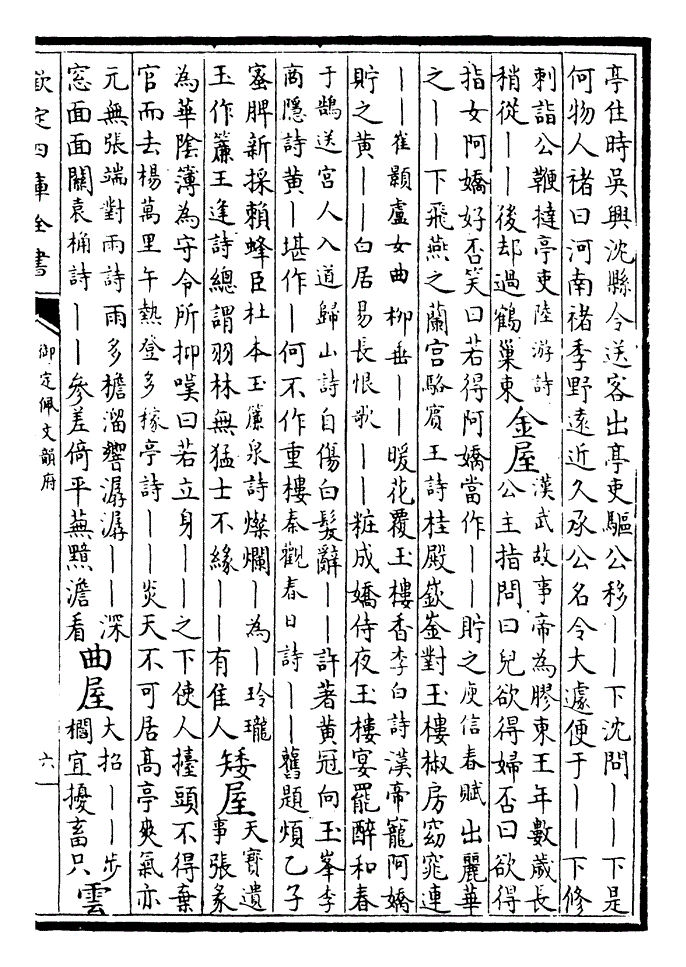 亭住時吳興沈縣令送客出亭吏驅公移｜｜下沈問｜｜下是
何物人褚曰河南褚季野遠近久承公名令大遽便于｜｜下修
刺詣公鞭撻亭吏陸游詩
稍從｜｜後却過鶴巢東
金屋
漢武故事帝為膠東王年數歲長
公主指問曰兒欲得婦否曰欲得
指女阿嬌好否笑曰若得阿嬌當作｜｜貯之庾信春賦出麗華
之｜｜下飛燕之蘭宮駱賓王詩桂殿嶔崟對玉樓椒房窈窕連
｜｜崔顥盧女曲柳垂｜｜暖花覆玉樓香李白詩漢帝寵阿嬌
貯之黄｜｜白居易長恨歌｜｜粧成嬌侍夜玉樓宴罷醉和春
于鵠送宮人入道歸山詩自傷白髮辭｜｜許著黄冠向玉峯李
商隱詩黄｜堪作｜何不作重樓秦觀春日詩｜｜舊題煩乙子
蜜脾新採賴蜂臣杜本玉簾泉詩燦爛｜為｜玲瓏
玉作簾王逢詩總謂羽林無猛士不緣｜｜有隹人
矮屋
天寳遺
事張彖
為華陰簿為守令所抑嘆曰若立身｜｜之下使人擡頭不得棄
官而去楊萬里午熱登多稼亭詩｜｜炎天不可居高亭爽氣亦
元無張端對雨詩雨多檐溜響潺潺｜｜深
窓面面闗袁桷詩｜｜參差倚平蕪黯澹看
曲屋
大招｜｜步
櫩宜擾畜只
雲
欽定四庫全書
御定佩文韻府
六